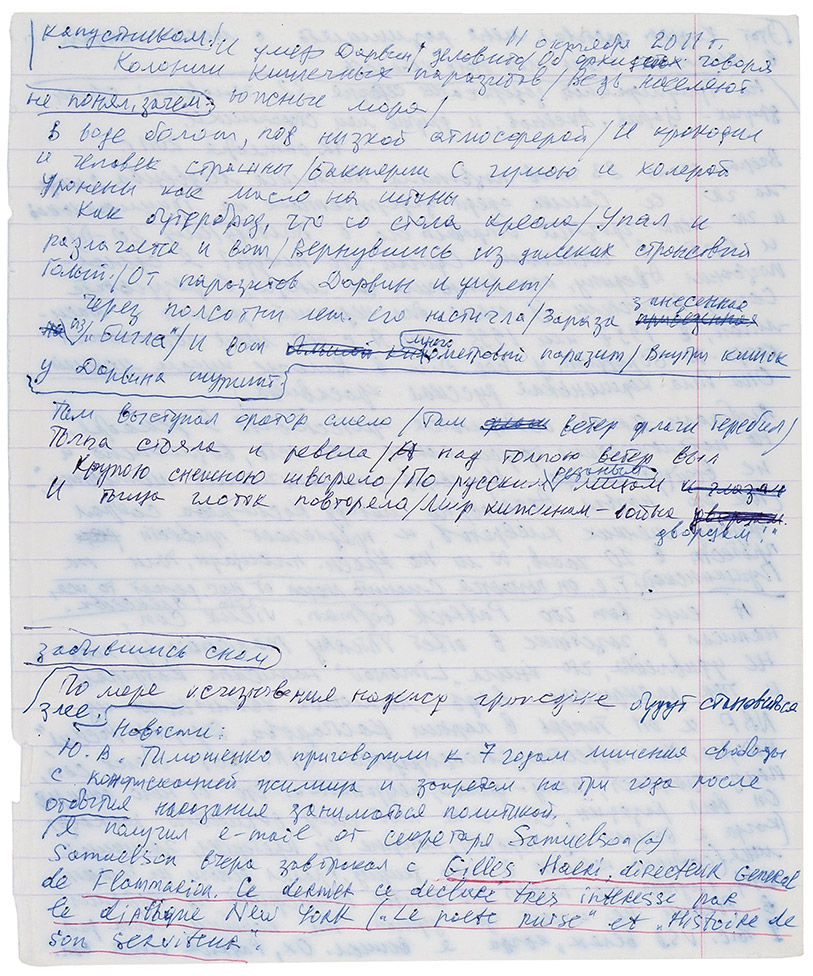 капустником! 11 октября 2011 г.
И умер Дарвин / деловито Об орхидеях говоря
Колонии кишечных паразитов / Ведь населяют
не понял, зачем; южные моря /
В воде болот, под низкой атмосферой / И крокодил
и человек страшны / Бактерии с чумою и холерой
Уронены как масло на штаны
Как бутерброд, что со стола креола / Упал и
разлагается и вот / Вернувшись из далеких странствий
Голый. / От паразитов Дарвин и умрет /
Через полсотни лет его настигла / Зараза занесенная
из / "Бигла" / И вот много метровый паразит / Внутри кишок
у Дарвина шуршит
Там выступал оратор смело / Там ветер флаги теребил /
Толпа стояла и ревела / А над толпою ветер выл
Крупою снежною швыряло / По русским розовым лицам и глазам
И тыща глоток повторяла / Мир хижинам – война
дворцам!"
забывшись сном
По мере исчезновения надежд граждане будут становиться
злее.
Новости:
Ю. В. Тимошенко приговорили к 7 годам лишения свободы
с конфискацией жилища и запретом на три года после
отбытия наказания заниматься политикой.
Я получил e-mail от секретаря Samuelson(а)
Samuelson вчера завтракал с Gilles Haeri, directeur General
de Flammarion. Ce dernier se declare très interesse par
le diptique New York („Le poete russe" et „Histoire de
son serviteur".